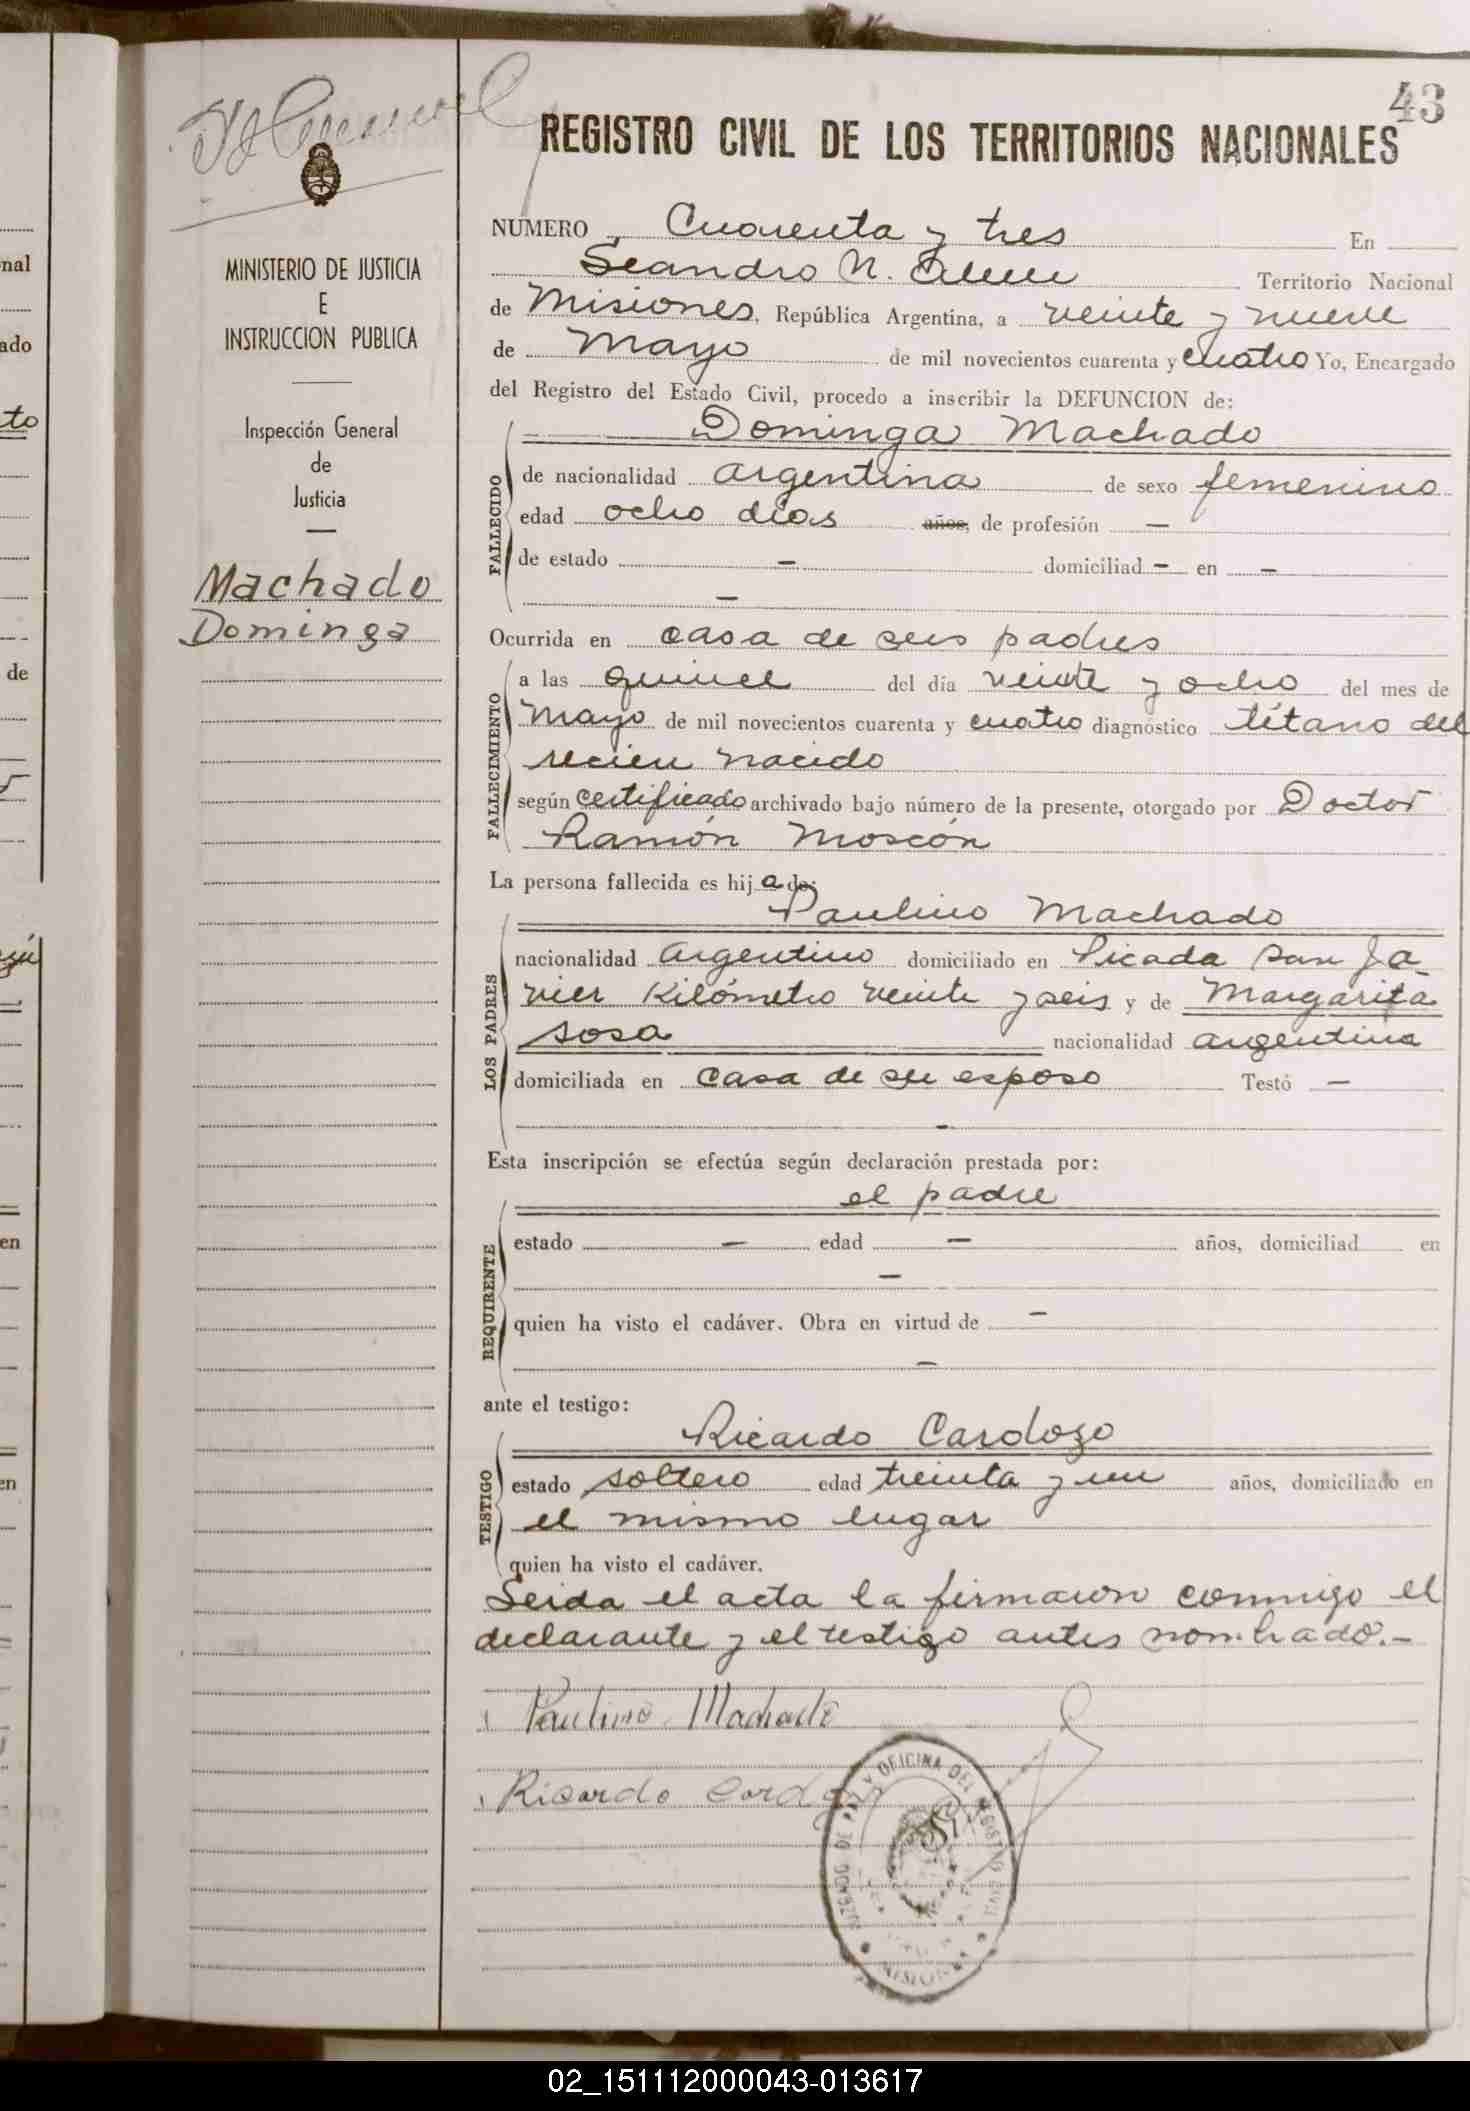 43
REGISTRO CIVIL DE LOS TERRITORIOS NACIONALES
MINISTERIO DE JUSTICIA
E
INSTRUCCION PUBLICA
Inspección General
de
Justicia
Machado
Dominga
NUMERO Cuarenta y tres En
Leandro N. Alem Territorio Nacional
de Misiones, República Argentina, a veinte y nueve
de Mayo de mil novecientos cuarenta y cuatro Yo, Encargado
del Registro del Estado Civil, procedo a inscribir la DEFUNCION de:
Dominga Machado
FALLECIDO
de nacionalidad argentina de sexo femenino
edad ocho días años, de profesión —
de estado — domiciliad — en —
—
Ocurrida en casa de sus padres
FALLECIMIENTO
a las quince del día veinte y ocho del mes de
Mayo de mil novecientos cuarenta y cuatro diagnóstico tétano del
recien nacido
según certificado archivado bajo número de la presente, otorgado por Doctor
Ramón Moscón
La persona fallecida es hij a de:
Paulino Machado
LOS PADRES
nacionalidad Argentino domiciliado en Picada San Ja
vier Kilómetro veinte y seis y de Margarita
Sosa nacionalidad argentina
domiciliada en casa de su esposo Testó —
—
Esta inscripción se efectúa según declaración prestada por:
el padre
REQUIRENTE
estado — edad — años, domiciliad en
—
quien ha visto el cadáver. Obra en virtud de —
—
ante el testigo:
Ricardo Cardozo
TESTIGO
estado soltero edad treinta y un años, domiciliado en
el mismo lugar
quien ha visto el cadáver.
Leida el acta la firmaron conmigo el
declarante y el testigo antes nombrado.-
Paulino Machado
Ricardo Cardozo
JUZGADO DE PAZ Y OFICINA DEL REGISTRO CIVIL
MISIONES
02_151112000043-013617